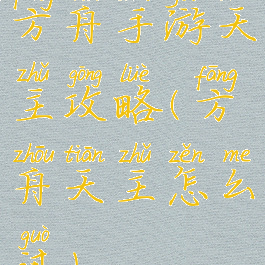 方舟手游天
zhǔ gōng lüè fāng
主攻略(方
zhōu tiān zhǔ zěn me
舟天主怎么
guò
过)